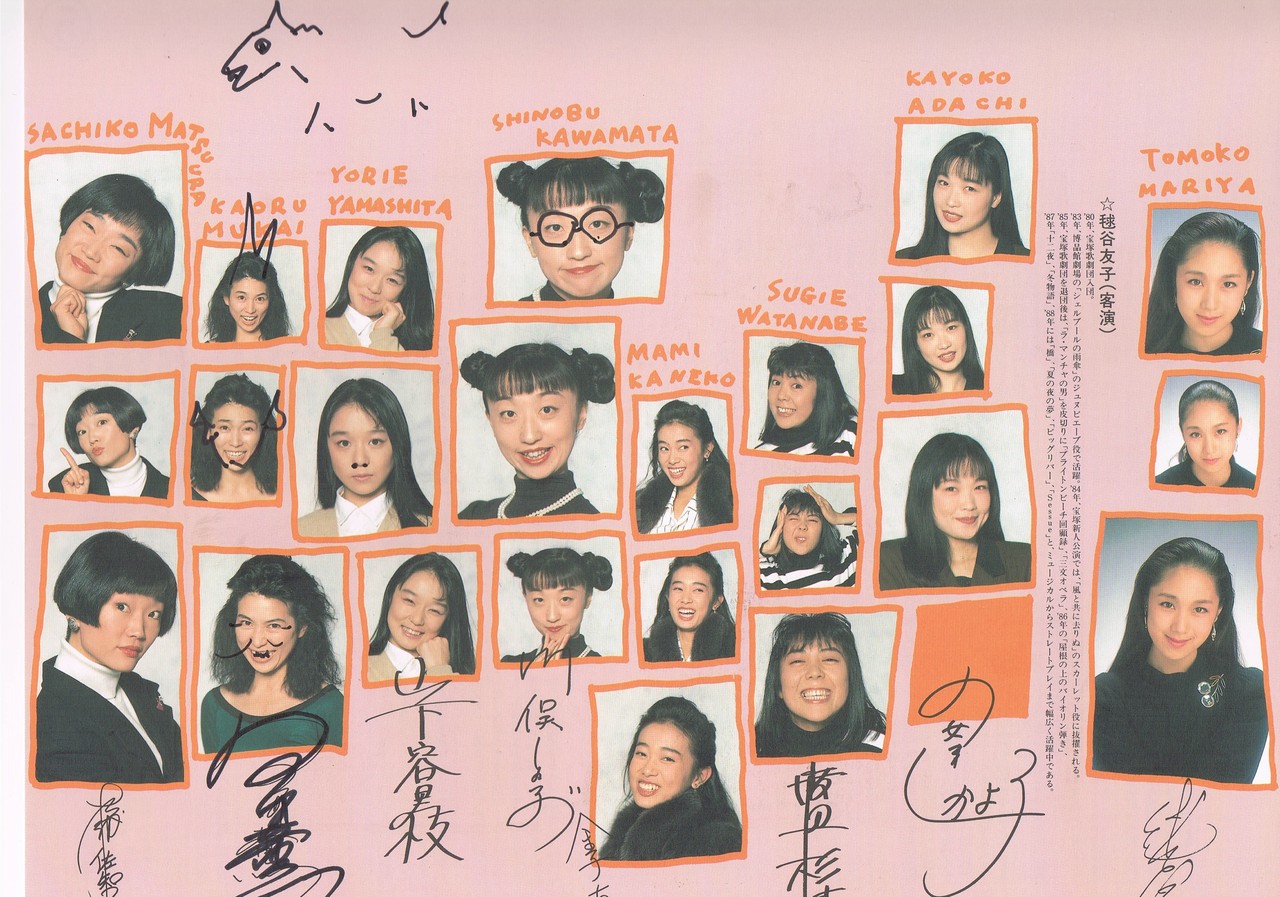 SACHIKO MATSUURA
KAORU
MUKAI
YORIE
YAMASHITA
SHINOBU
KAWAMATA
MAMI
KANEKO
SUGIE
WATANABE
KAYOKO
ADACHI
TOMOKO
MARIYA
☆毬谷友子(客演)
'80年、宝塚歌劇団入団。
'83年、博品館劇場の「シェルブールの雨傘」のジュヌビエーブ役で活躍。'84年、宝塚新人公演では、「風と共に去りぬ」のスカーレット役に抜擢される。
'85年、宝塚歌劇団を退団後は、「ラ・マンチャの男」を皮切りに「ブライトンビーチ回顧録」、「三文オペラ」、'86年の「屋根の上のバイオリン弾き」、
'87年「十二夜」、「冬物語」、'88年には「橋」、「夏の夜の夢」、「ビッグリバー」、「Sessue」と、ミュージカルからストレートプレイまで幅広く活躍中である。
山下容里枝
川俣しのぶ